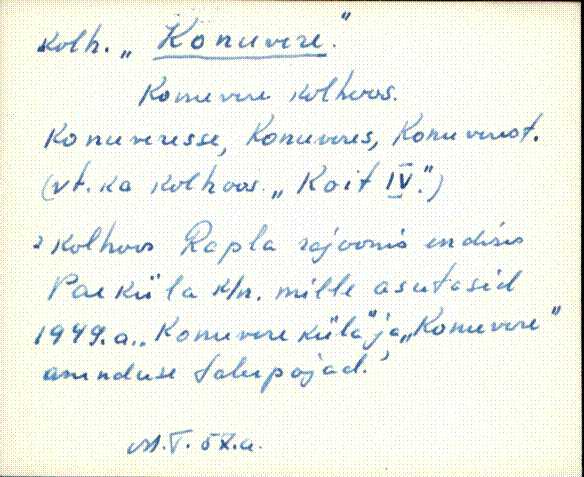 kolh. „Konuvere."
Konuvere kolhoos.
Konuveresse, Konuveres, Konuverest.
(vt. ka kolhoos „Koit IV.")
2 kolhoos Rapla rajoonis endises
Paeküla k/n. mille asutasid
1949.a. „Konuvere küla" ja „Konuvere"
asunduse talupojad.'
M.T. 57.a.